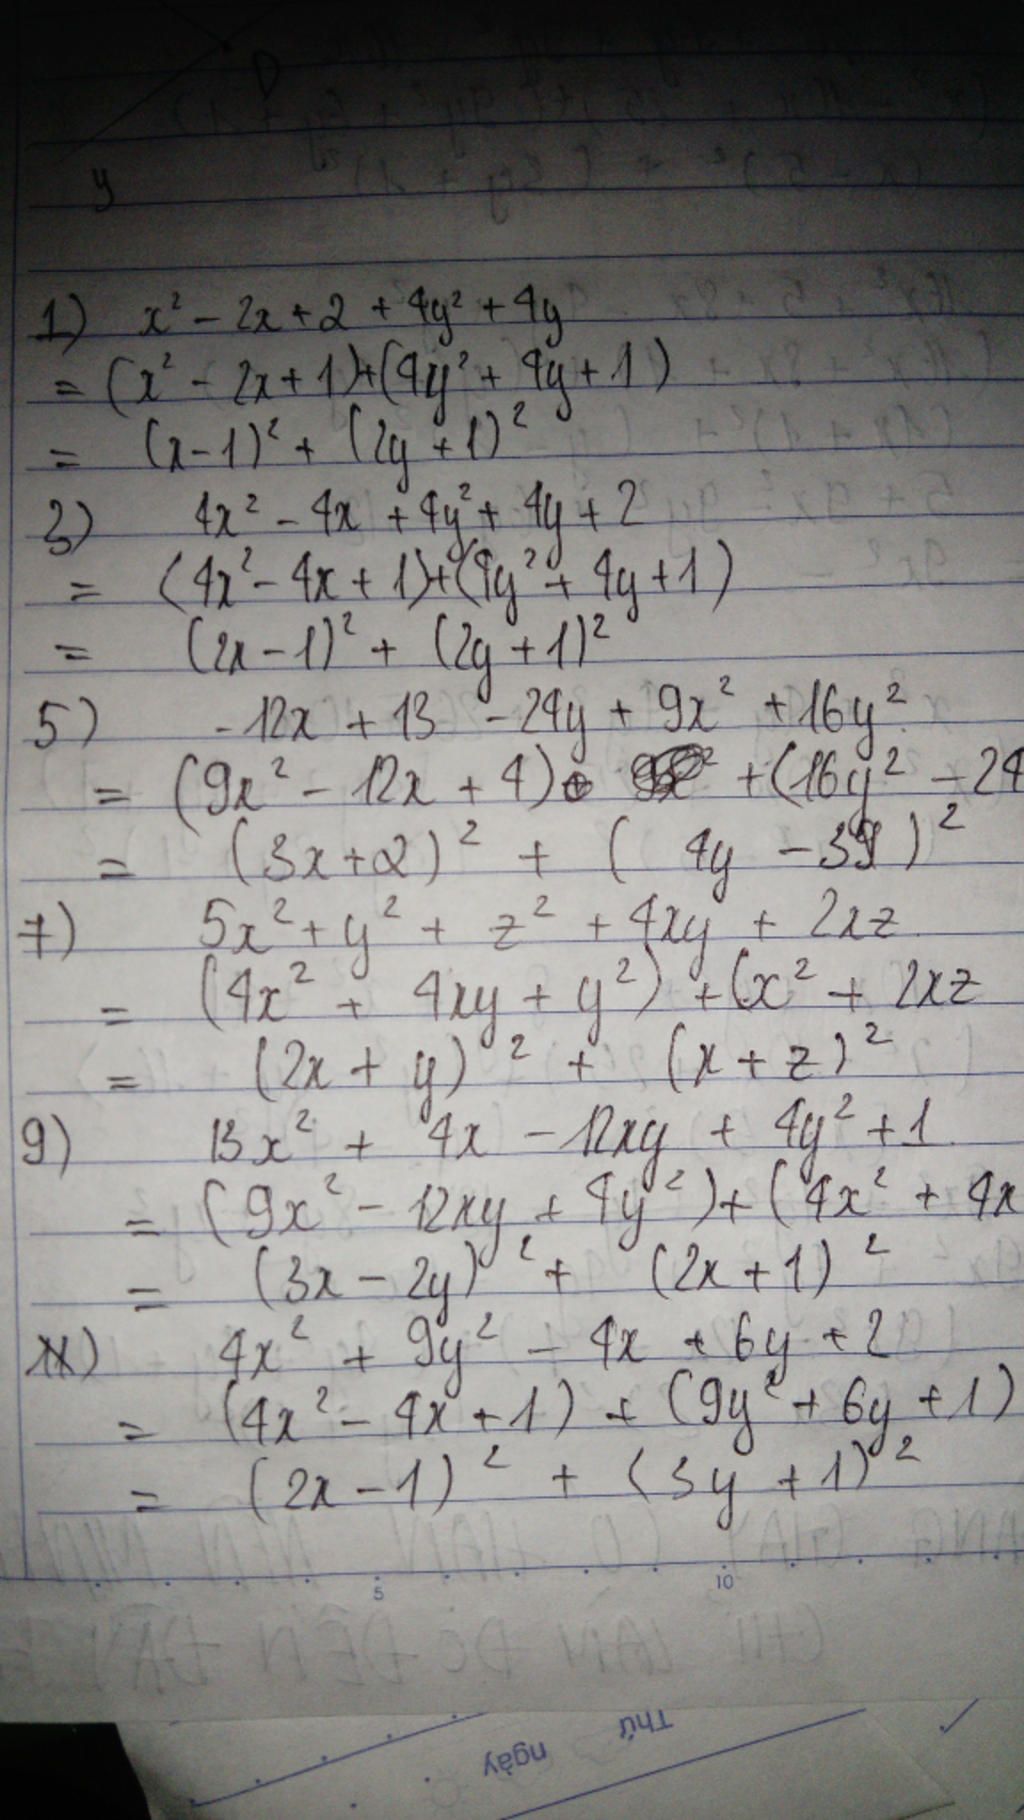 y
1) x² - 2x + 2 + 4y² + 4y
= (x² - 2x + 1) + (4y² + 4y + 1)
= (x - 1)² + (2y + 1)²
3) 4x² - 4x + 4y² + 4y + 2
= (4x² - 4x + 1) + (4y² + 4y + 1)
= (2x - 1)² + (2y + 1)²
5) - 12x + 13 - 24y + 9x² + 16y²
= (9x² - 12x + 4) + (16y² - 24
= (3x + 2)² + ( 4y - 3 )²
7) 5x² + y² + z² + 4xy + 2xz
= (4x² + 4xy + y²) + (x² + 2xz
= (2x + y)² + (x + z)²
9) 13x² + 4x - 12xy + 4y² + 1
= (9x² - 12xy + 4y²) + (4x² + 4x
= (3x - 2y)² + (2x + 1)²
11) 4x² + 9y² - 4x + 6y + 2
= (4x² - 4x + 1) + (9y² + 6y + 1)
= (2x - 1)² + (3y + 1)²
5 10
Thứ
ngày